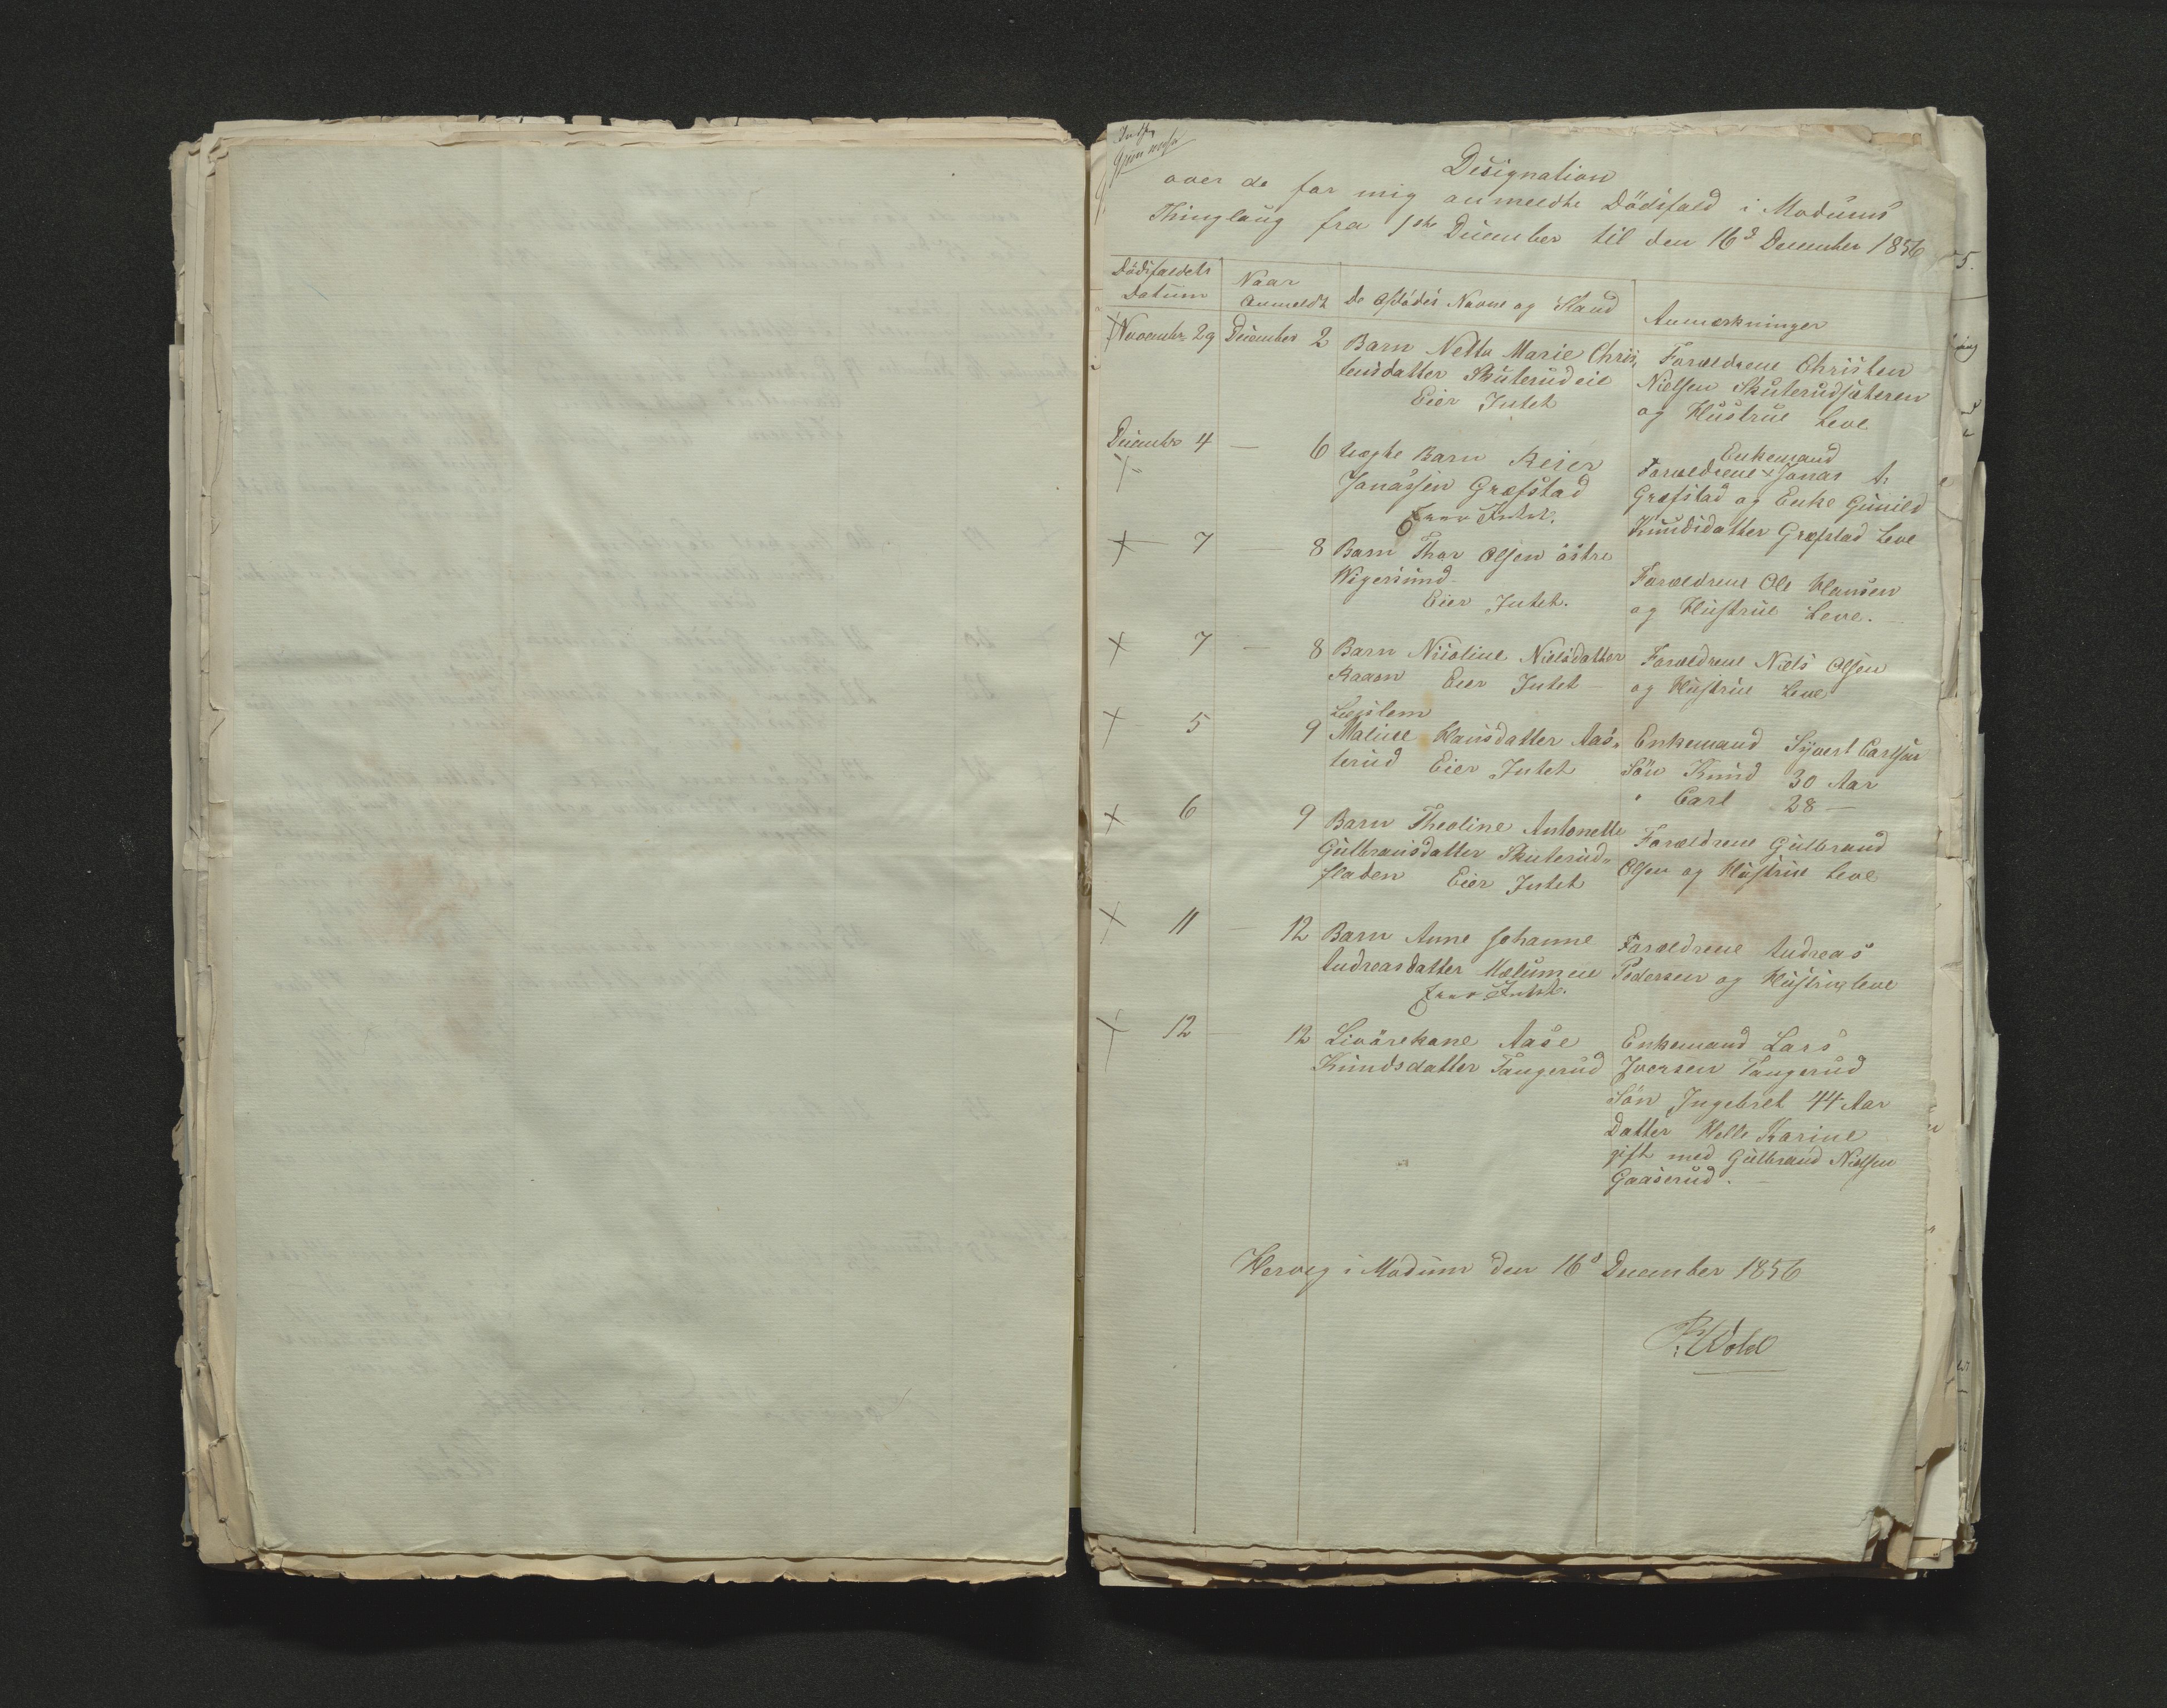 Designation
over de for mig anmeldte Dödsfald i Modums
Thinglaug fra 1ste December til den 16d December 1856
Dödsfaldets Datum
Naar Anmeldt
De Afdödes Navne og Stand
Anmærkninger
November 29 December 2 Barn Netta Marie Chris,
tensdatter Skuterudeie
Eier Intet
Forældrene Christen
Nielsen Skuterudsæteren
og Hustrue Leve
December 4 — 6 uægte Barn Reier
Jonassen Græfstad
Eier Intet.
Enkemand
Forældrene × Jonas A.
Græfstad og Enke Gunild
Knudsdatter Græfstad Leve
7 — 8 Barn Thor Olsen östre
Wigersund
Eier Intet.
Forældrene Ole Hansen
og Hustrue Leve.
7 — 8 Barn Nicoline Nielsdatter
Raaen Eier Intet
Forældrene Niels Olsen
og Hustrue Leve
5 9 Legslem
Maline Hansdatter Aas„
terud Eier Intet
Enkemand Syvert Carlsen
Sön Knud 30 Aar
" Carl 28 —
6 9 Barn Theoline Antonette
Gulbransdatter Skuterud„
fladen Eier Intet
Forældrene Gulbrand
Olsen og Hustrue Leve
11 — 12 Barn Anne Johanne
Andreasdatter Mælumeie
Eier Intet.
Forældrene Andreas
Pedersen og Hustrue Leve
12 — 12 Livörekone Aase
Knudsdatter Tangerud
Enkemand Lars
Iversen Tangerud
Sön Ingebret 44 Aar
Datter Helle Karine
gift med Gulbrand Nielsen
Gaaserud.
Hervig i Modum den 16d December 1856
P. Wold